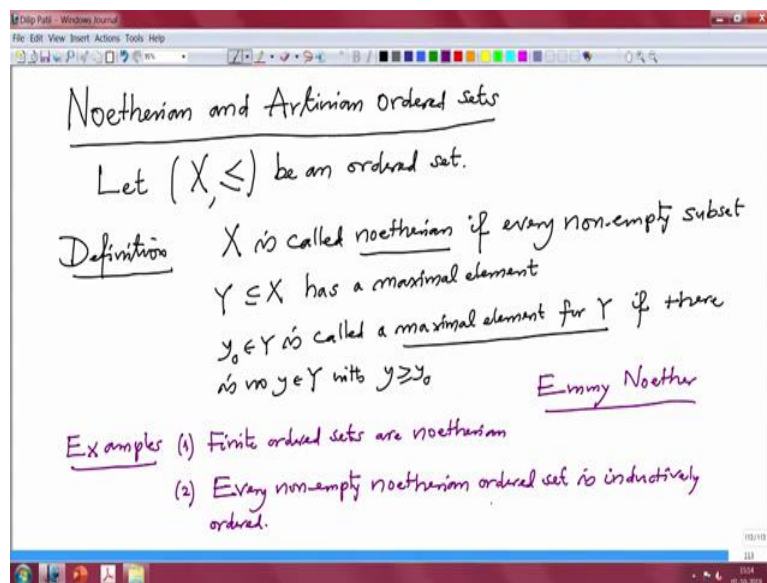 Dilip Patil - Windows Journal
File Edit View Insert Actions Tools Help
Noetherian and Artinian Ordered sets
Let (X, ≤) be an ordered set.
Definition X is called noetherian if every non-empty subset
Y ⊆ X has a maximal element
y₀ ∈ Y is called a maximal element for Y if there
is no y ∈ Y with y ≥ y₀
Emmy Noether
Examples (1) Finite ordered sets are noetherian
(2) Every non-empty noetherian ordered set is inductively
ordered.